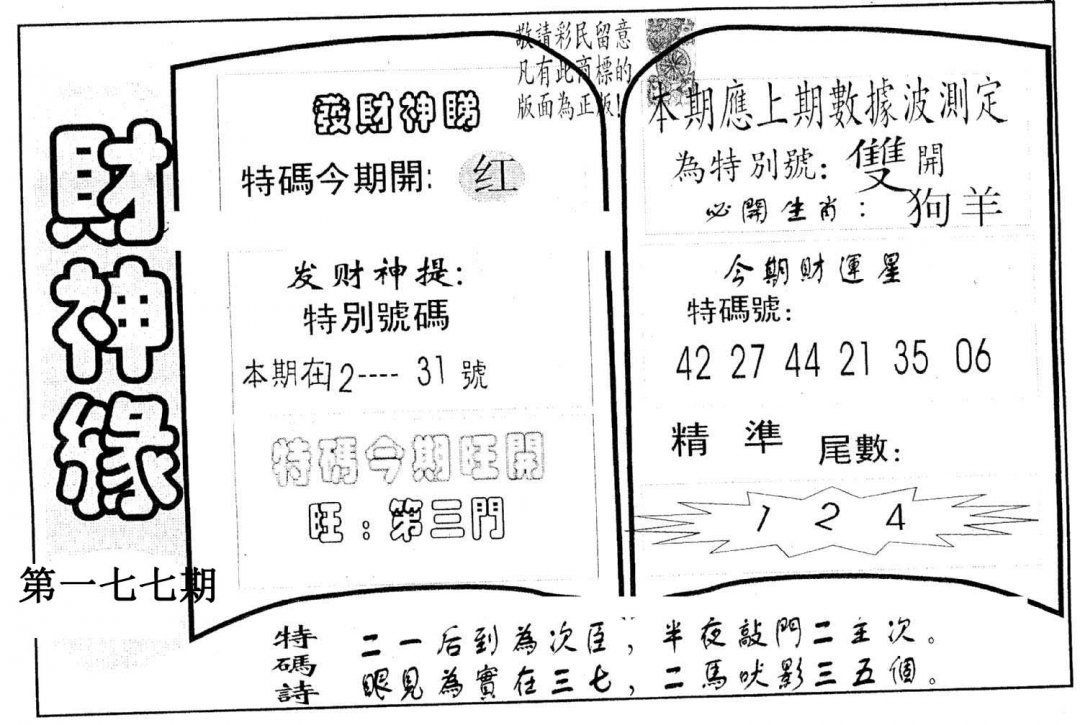 財神緣
第一七七期
敬請彩民留意
凡有此商標的
版面為正版!
發財神睇
特碼今期開: 红
发财神提:
特別號碼
本期在12---- 31 號
特碼今期旺開
旺:第三門
本期應上期數據波測定
為特別號: 雙開
必開生肖: 狗羊
今期財運星
特碼號:
42 27 44 21 35 06
精準 尾數:
1 2 4
特碼詩
二一后到為次臣,半夜敲門二主次。
眼見為實在三七,二馬吠影三五個。